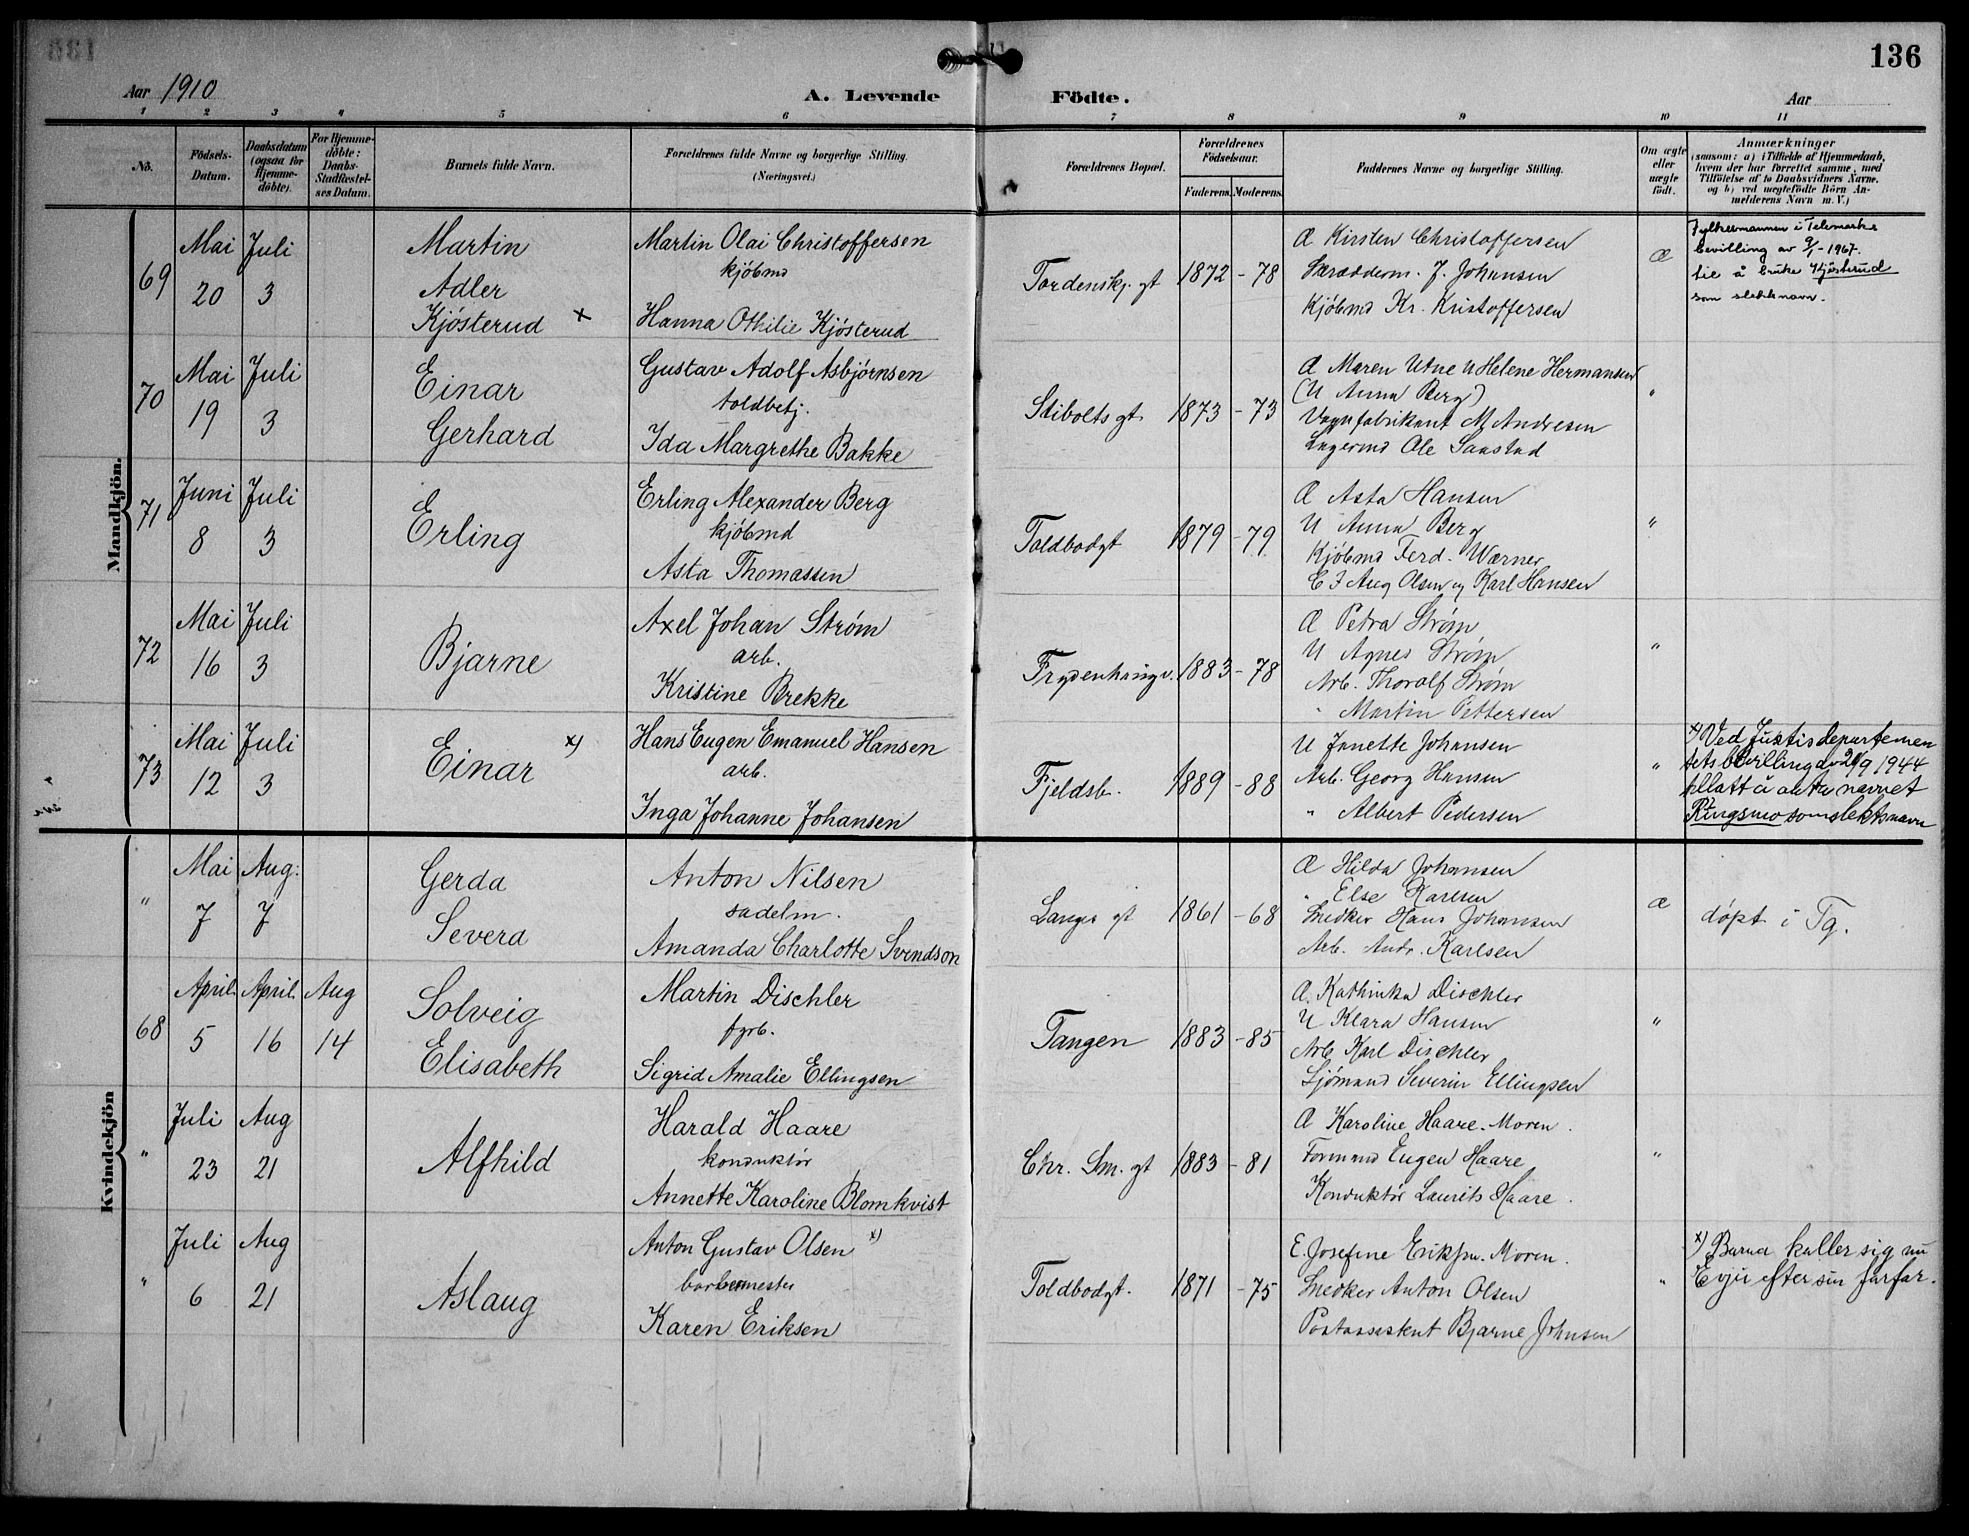 136
Aar 1910
A. Levende Födte.
Aar
1 2 3 4 5 6 7 8 9 10 11
No.
Födsels-
Datum.
Daabsdatum
(ogsaa for
Hjemme-
döbte).
For Hjemme-
döbte:
Daabs-
Stadfæstel-
ses Datum.
Barnets fulde Navn.
Forældrenes fulde Navne og borgerlige Stilling.
(Næringsvei.)
Forældrenes Bopæl.
Forældrenes
Födselsaar.
Faderens. Moderens.
Faddernes Navne og borgerlige Stilling.
Om ægte
eller
uægte
födt.
Anmærkninger
(saasom: a) i Tilfælde af Hjemmedaab,
hvem der har forrettet samme, med
Tilföielse af to Daabsvidners Navne,
og b) ved uægtefödte Börn An-
melderens Navn m. V.)
Mandkjön.
69
Mai 20
Juli 3
Martin
Adler
Kjósterud x
Martin Olai Christoffersen
kjóbmd
Hanna Othilie Kjósterud
Tordenskj. gt
1872 - 78
Æ Kirsten Christoffersen
Skrædderm. J. Johansen
Kjóbmd Kr. Kristoffersen
Æ
Fylkesmannen i Telemarks
bevilling av 9/1-1967.
til å bruke Kjósterud
som slektsnavn.
70
Mai 19
Juli 3
Einar
Gerhard
Gustav Adolf Asbjørnsen
toldbetj.
Ida Margrethe Bakke
Stibolts gt
1873 - 73
Æ Maren Utne U Helene Hermansen
(U Anna Berg)
Vognfabrikant M. Andresen
Lagermd Ole Saastad
"
71
Juni 8
Juli 3
Erling
Erling Alexander Berg
kjóbmd
Asta Thomassen
Toldbodgt
1879 - 79
Æ Asta Hansen
U Anna Berg
Kjóbmd Ferd. Wærner
E I Aug Olsen og Karl Hansen
"
72
Mai 16
Juli 3
Bjarne
Axel Johan Strøm
arb.
Kristine Brekke
Frydenhaugv.
1883 - 78
Æ Petra Strøm
U Agnes Strøm
Arb. Thoralf Strøm
" Martin Pettersen
"
73
Mai 12
Juli 3
Einar x)
Hans Eugen Emanuel Hansen
arb.
Inga Johanne Johansen
Fjeldsb.
1889 - 88
U Janette Johansen
Arb. Georg Hansen
" Albert Pedersen
"
x) Ved Justisdepartemen
tets bevilling av 21/9 1944
tillatt å anta navnet
Ringsmo som slektsnavn
Kvindekjön
"
Mai 7
Aug. 7
Gerda
Severa
Anton Nilsen
sadelm.
Amanda Charlotte Svendson
Langes gt
1861 - 68
Æ Hilda Johansen
" Else Karlsen
Snedker Hans Johansen
Arb. Andr. Karlsen
Æ
døpt i Tg.
68
April 5
April 16
Aug 14
Solveig
Elisabeth
Martin Dischler
fyrb.
Sigrid Amalie Ellingsen
Tangen
1883 - 85
Æ. Kathinka Dischler
U Klara Hansen
Arb. Karl Dischler
Sjómand Severin Ellingsen
"
"
Juli 23
Aug 21
Alfhild
Harald Haare
konduktór
Annette Karoline Blomkvist
Chr. Sm. gt
1883 - 81
Æ Karoline Haare. Moren.
Formand Eugen Haare
Konduktór Laurits Haare.
"
"
Juli 6
Aug 21
Aslaug
Anton Gustav Olsen x)
barbermester
Karen Eriksen
Toldbodgt.
1871 - 75
E. Josefine Eriksen. Moren.
Snedker Anton Olsen
Postassistent Bjarne Johnsen
"
x) Barna kaller sig nu
Evju efter sin farfar.